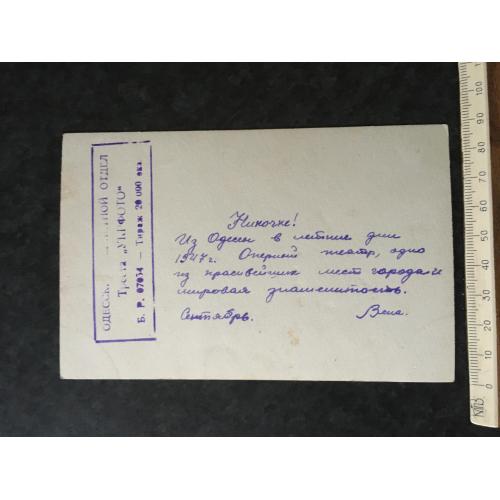 Ниночке!
Из Одессы в летние дни
1947г. Оперный театр, одно
из красивейших мест города и
мировая знаменитость.
Сентябрь.
ОДЕССК ОТДЕЛ
Треста „УКРФОТО“
Б. Р. 07034 — Тираж 20 000 экз.
100
90
80
70
60
50
40
30
20
10